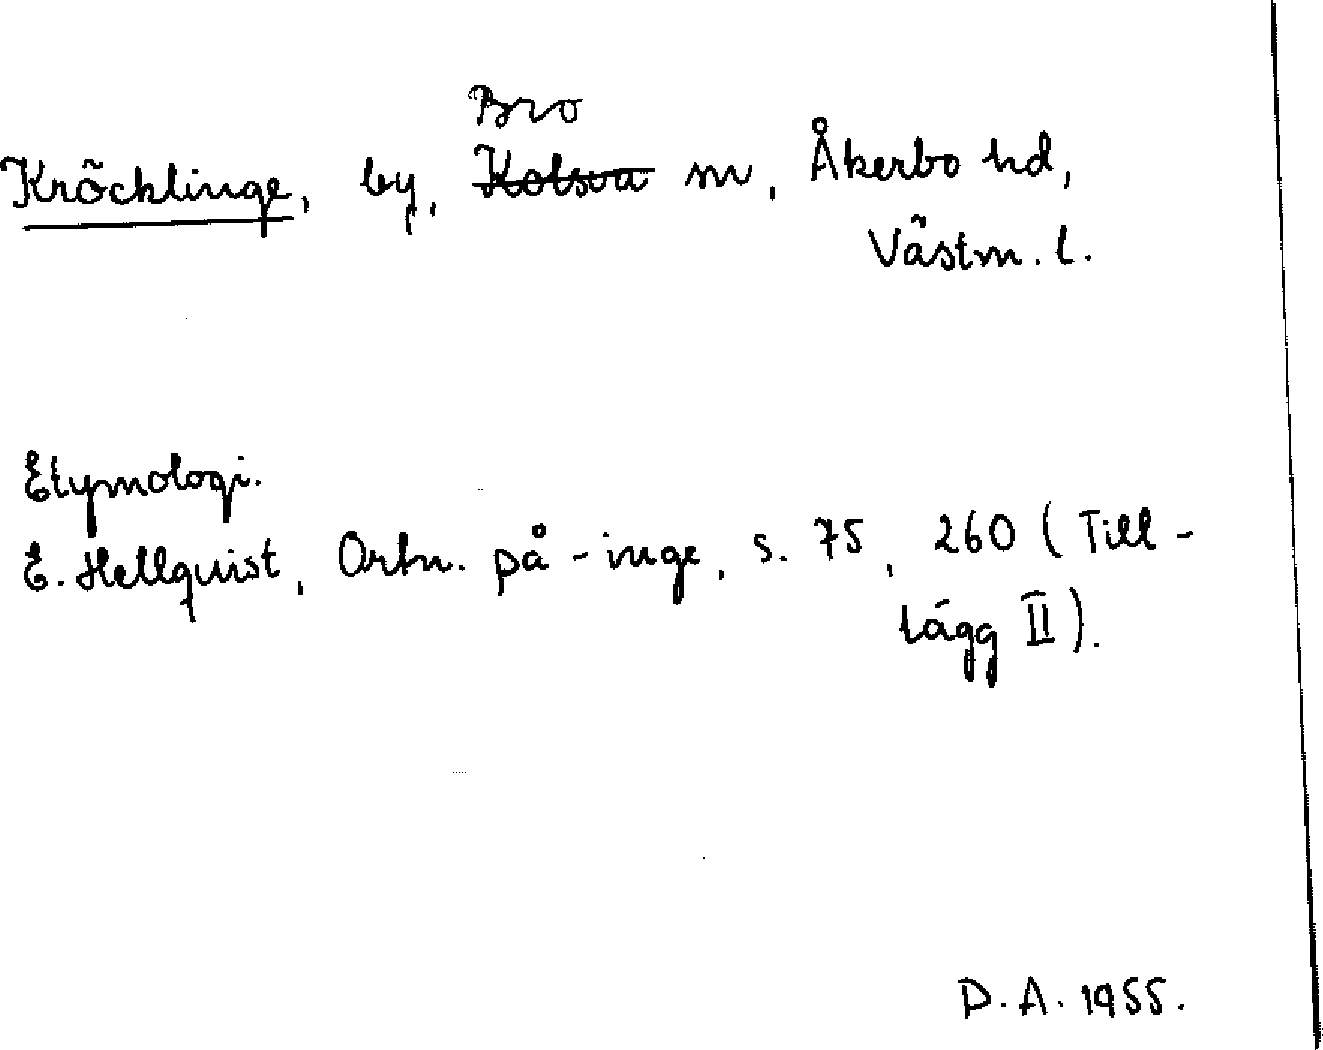 Bro
Kröcklinge, by, Kolsva sn, Åkerbo hd,
Västm. l.
Etymologi.
E. Hellquist, Ortn. på -inge, s. 75, 260 (Till-
lägg II).
D. A. 1955.